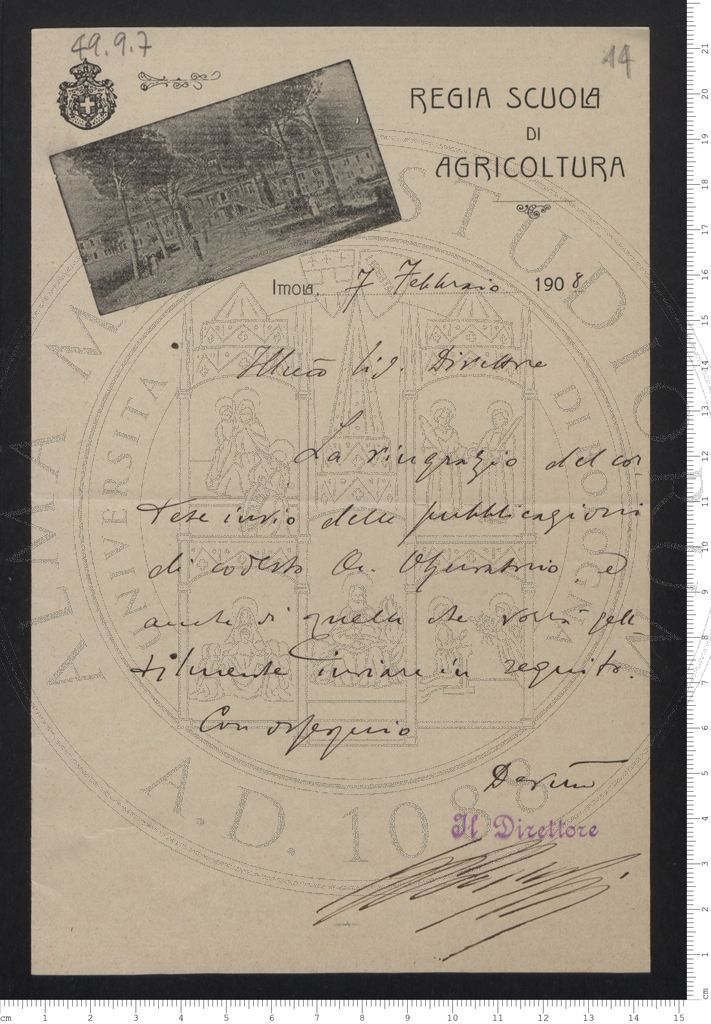 49.9.7
14
REGIA SCUOLA
DI
AGRICOLTURA
Imola, 7 Febbraio 1908
Illmo Sig. Direttore
La ringrazio del cor
tese invio delle pubblicazioni
di codesto On. Osservatorio e
anche di quelle che vorrà gen
tilmente inviare in seguito.
Con ossequio
Devmo
Il Direttore
ALMA MATER STUDIORUM
UNIVERSITÀ DI BOLOGNA
A.D. 1088